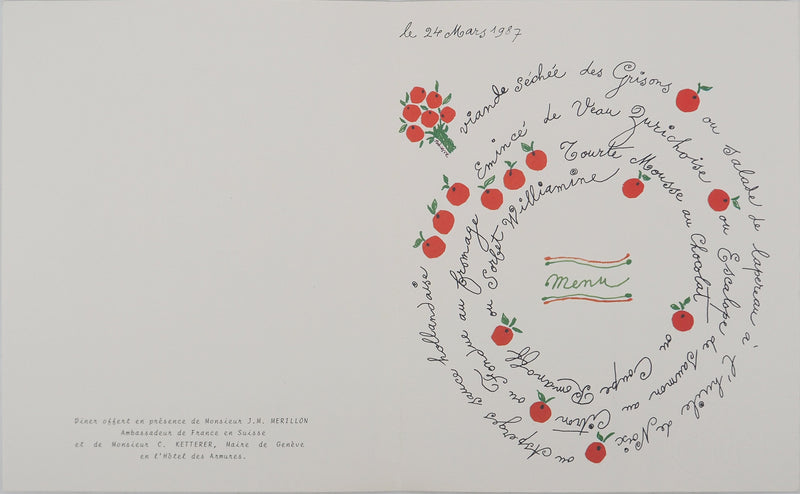 le 24 Mars 1987
viande séchée des Grisons
ou Salade de lapereau à l'huile de Noix
ou Asperges sauce hollandaise
Emincé de Veau Zurichoise
ou Escalope de Saumon au Citron
ou Fondue au fromage
Tourte Mousse au Chocolat
ou Coupe Romanoff
ou Sorbet Williamine
menu
Diner offert en présence de Monsieur J.M. MERILLON
Ambassadeur de France en Suisse
et de Monsieur C. KETTERER, Maire de Genève
en l'Hôtel des Armures.